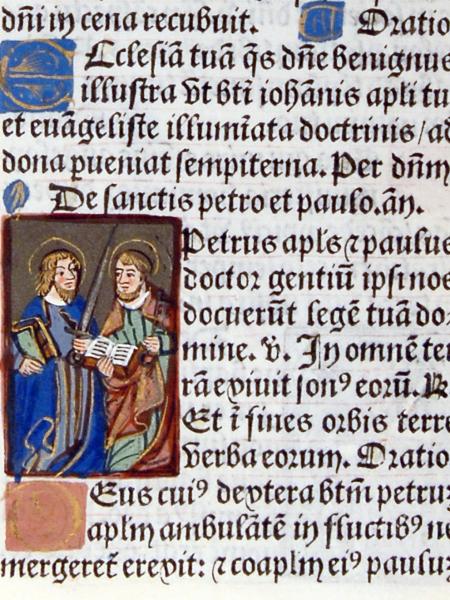 dñi in cena recubuit. Oratio
Ecclesiã tuã q̃s dñe benignus
illustra vt bti iohãnis apli tu
et euãgeliste illumĩata doctrinis/ad
dona pueniat sempiterna. Per dñm
De sanctis petro et paulo. añ.
Petrus apls ⁊ paulus
doctor gentiũ ipsi nos
docuerũt legẽ tuã do
mine. v. In omnẽ ter
rã exiuit sonꝰ eorũ. R
Et ĩ fines orbis terre
verba eorum. Oratio
Deus cuiꝰ dextera btm petrum
aplm ambulãtẽ in fluctibꝰ ne
mergeret̃ erexit: ⁊ coaplm eiꝰ paulum